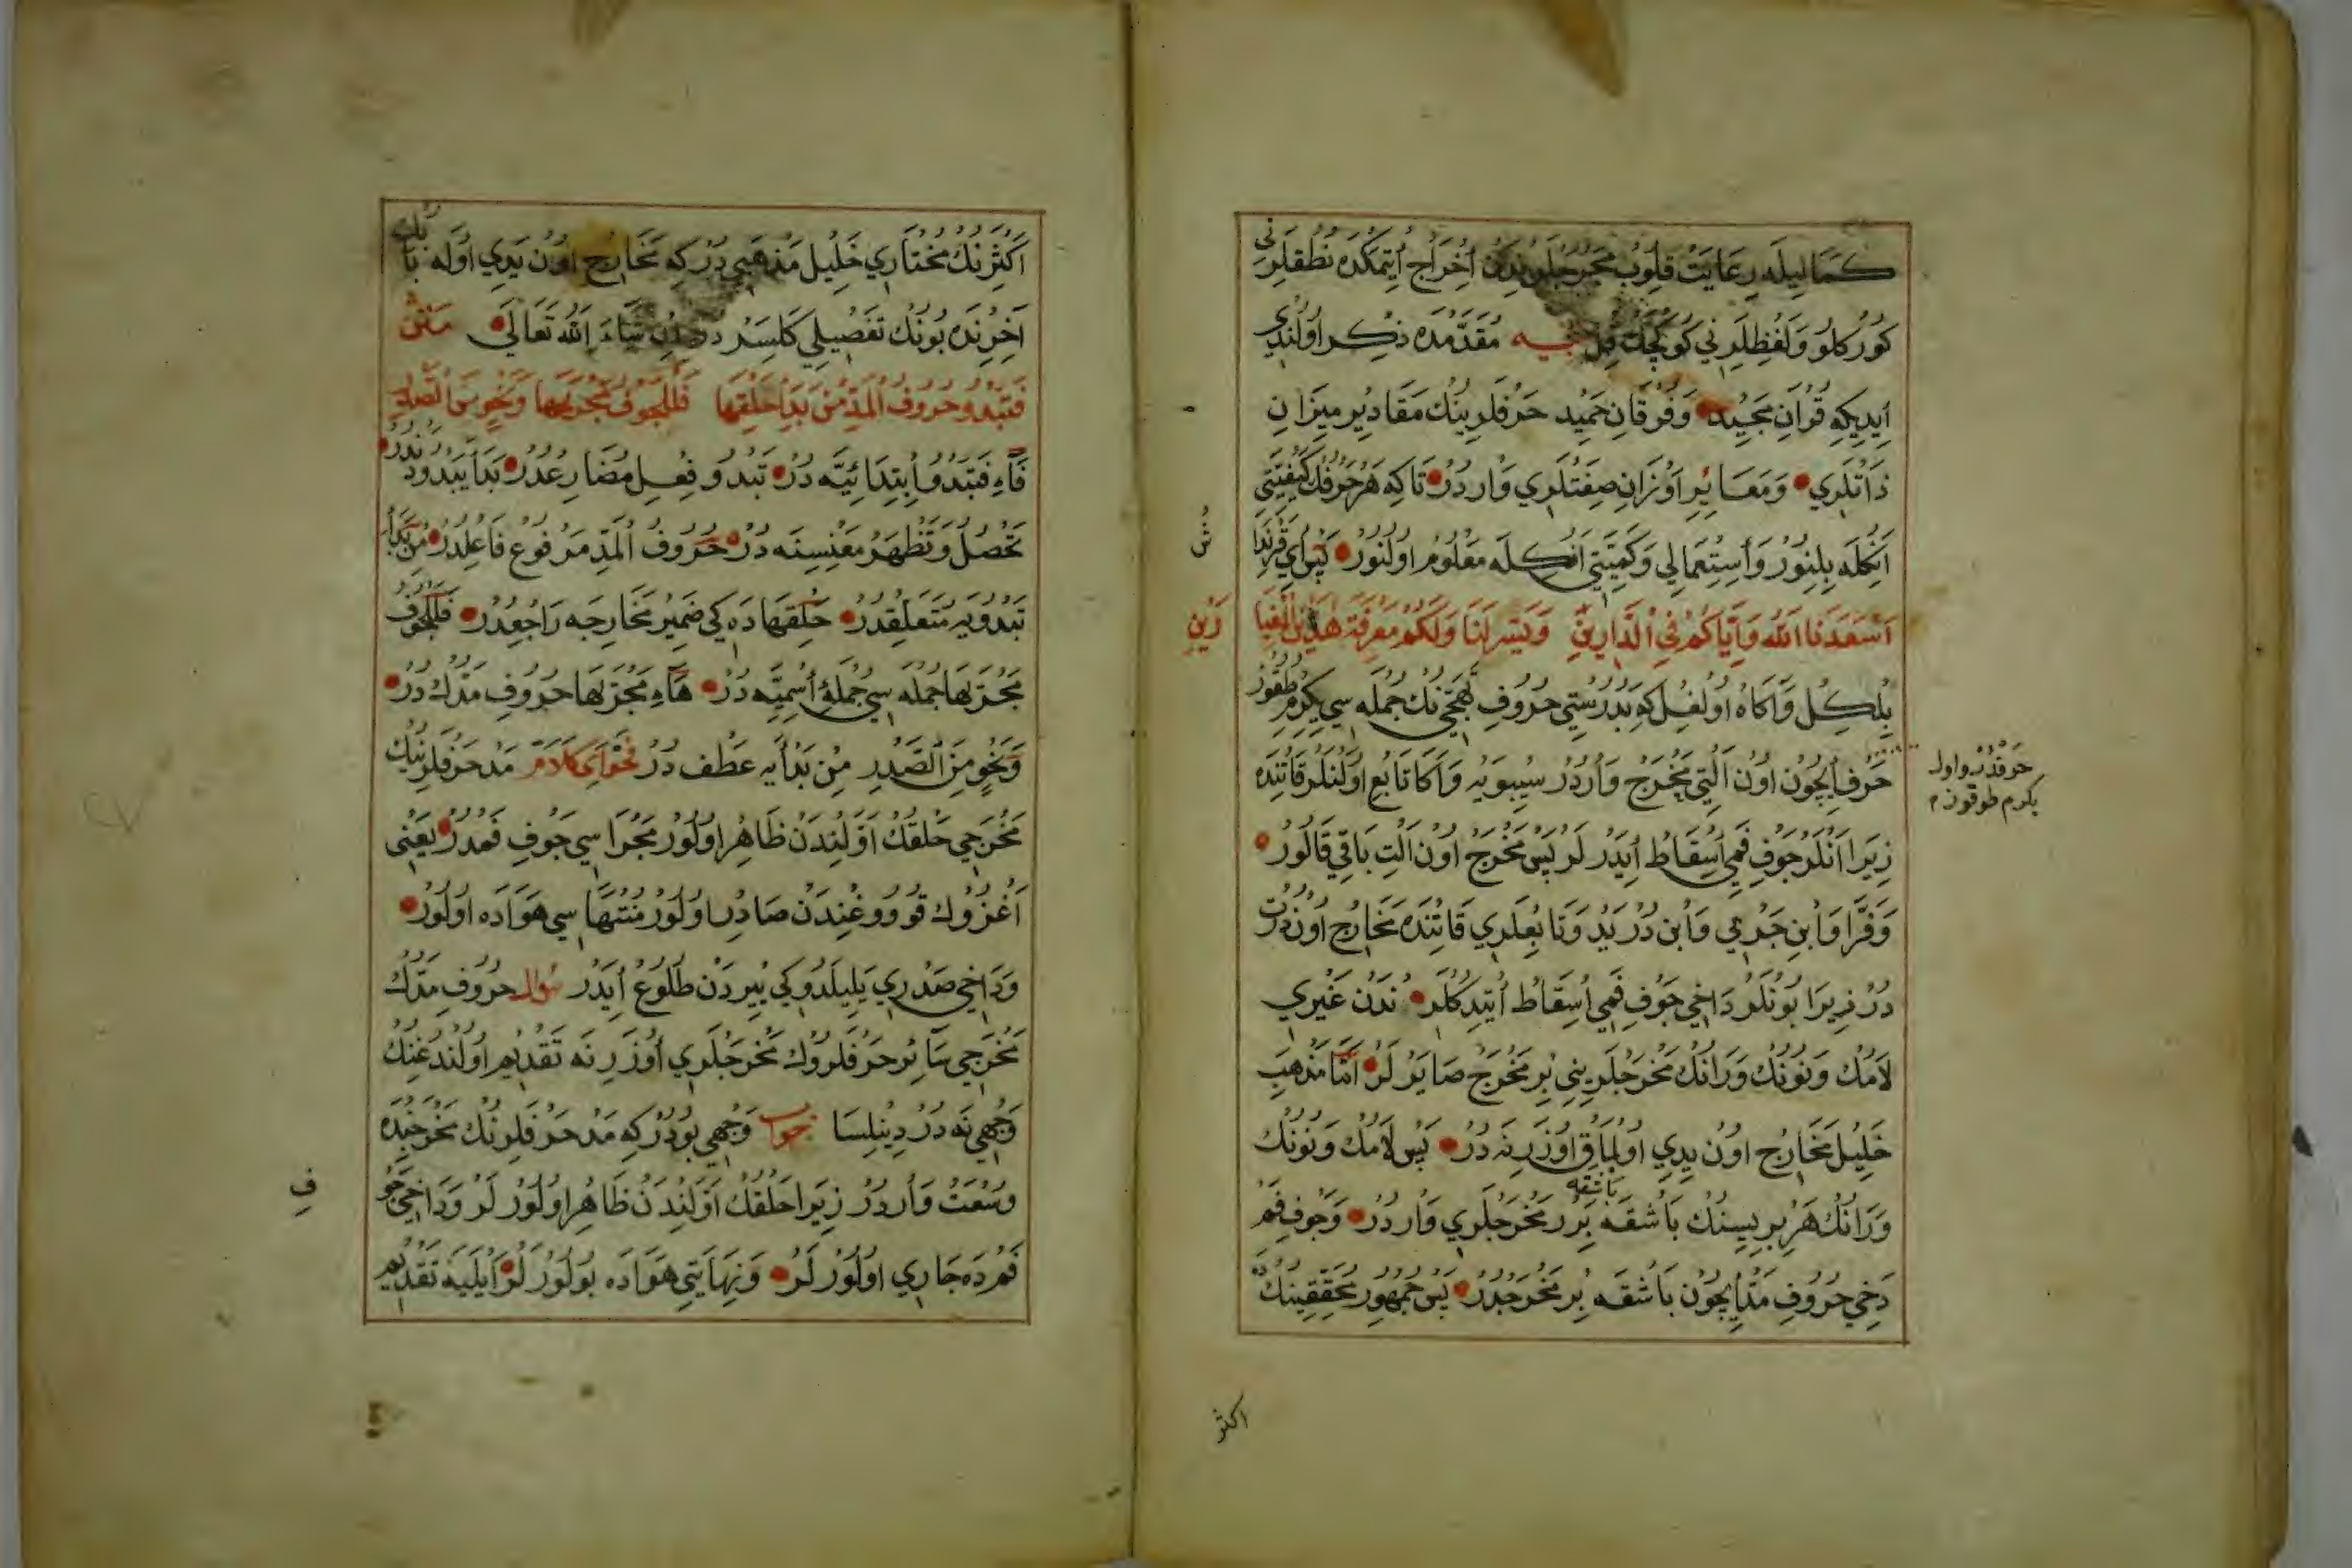 كَمَالِيلَه رِعَايَتْ قِلُوبْ مَخْرَجْلَرِنْدَنْ اِخْرَاجْ اِيتْمَكْدَه نُطْقلَرِنِي
كُورْكلُو وَلَفْظلَرِنِي كُوكْچَكْ قِيلْ تنبيه مُقَدَّمَدَه ذِكْر اُولُنْدِي
اِيدِيكِه قُرْآنِ مَجِيد وَفُرْقَانِ حَمِيد حَرْفلَرِينُكْ مَقَادِيرِ مِيزَانِ
ذَاتْلَرِي وَمَعَايِيرِ اَوْزَانِ صِفَتْلَرِي وَارْدُرْ تَاكِه هَرْ حَرْفُكْ كَيْفِيَّتِي
اَنُكْلَه بِلِنُورْ وَاِسْتِعْمَالِي وَكَمِّيَّتِي اَنُكْلَه مَعْلُوم اُولُنُورْ پَسْ اَي قَرِنْدَا
ش
اَسْعَدَنَا اللّٰه وَاِيَّاكُمْ فِي الدَّارَيْنِ وَيَسَّرَ لَنَا وَلَكُمْ مَعْرِفَةَ هٰذَيْنِ الْعِيَا
رَيْنِ
بِلْكِلْ وَآكَاهْ اُولْغِلْ كِه بَدُرُسْتِي حُرُوفِ تَهَجِّي نُكْ جُمْلَه سِي يِكِرْمِ طُقُوزْ
حَرْف اِيچُونْ اُونْ اَلْتِي مَخْرَجْ وَارْدُرْ سِيبَوَيْه وَاَكَا تَابِع اُولَنْلَرْ قَاتِنْدَه
حرفدر واول
يكرم طوقوزم
زِيرَا اَنْلَرْ جَوْفِ فَمِي اِسْقَاطْ اِيدَرْلَرْ پَسْ مَخْرَجْ اُونْ اَلْتِي بَاقِي قَالُورْ
وَفَرَّا وَابْنِ جَرْمِي وَابْنِ دُرَيْد وَتَابِعلَرِي قَاتِنْدَه مَخَارِجْ اُونْ دُرْتْ
دُرْ زِيرَا بُونْلَرْ دَاخِي جَوْفِ فَمِي اِسْقَاطْ اِتْدِكْلَرْ نْدَنْ غَيْرِي
لَامُكْ وَنُونُكْ وَرَانُكْ مَخْرَجْلَرِينِي بِرْ مَخْرَجْ صَايَرْلَرْ اَمَّا مَذْهَبِ
خَلِيلْ مَخَارِجْ اُونْ يِدِي اُولْمَاقْ اُوزَرِنَه دُرْ پَسْ لَامُكْ وَنُونُكْ
وَرَانُكْ هَرْ بِرِيسِنُكْ بَاشْقَه بِرَرْ مَخْرَجْلَرِي وَارْدُرْ وَجَوْفِ فَمْ
باشقه
دَخِي حُرُوفِ مَدّ اِيچُونْ بَاشْقَه بِرْ مَخْرَجْدُرْ پَسْ جُمْهُورِ مُحَقِّقِينُكْ
اكثر
اَكْثَرِنُكْ مُخْتَارِي خَلِيلْ مَذْهَبِي دُرْ كِه مَخَارِجْ اُونْ يِدِي اُولَه بَابُكْ
آخِرِنْدَه بُونُكْ تَفْصِيلِي كَلِسَرْدُر اِنْ شَاءَ اللّٰه تَعَالَى مَتْنْ
فَتَبْدُو حُرُوفُ الْمَدِّ مِنْ بَدْاِ حَلْقِهَا فَلِلْجَوْفِ مَجْرٰيهَا وَنَحْوٍ مِنَ الصَّدْرِ
فَاءِ فَتَبْدُو اِبْتِدَائِيَّه دُرْ تَبْدُو فِعْلِ مُضَارِعْدُرْ بَدَا يَبْدُودَنْدُرْ
تَحْصُلُ وَتَظْهَرُ مَعْنِيسِنَه دُرْ حُرُوفُ الْمَدِّ مَرْفُوع فَاعِلِدُرْ مِنْ بَدْاِ
تَبْدُويَه مُتَعَلِّقْدُرْ حَلْقِهَا دَه كِي ضَمِيرْ مَخَارِجَه رَاجِعْدُرْ فَلِلْجَوْفِ
مَجْرٰيهَا جُمْلَه سِي جُمْلَۀِ اِسْمِيَّه دُرْ هَاءِ مَجْرٰيهَا حُرُوفِ مَدُّكْ دُرْ
وَنَحْوٍ مِنَ الصَّدْرِ مِنْ بَدْاَيَه عَطْف دُرْ فَحْوَاىِ كَلَامْ مَدْ حَرْفلَرِينُكْ
مَخْرَجِي حَلْقُكْ اَوَّلِنْدَنْ ظَاهِر اُولُورْ مَجْرَاسِي جَوْفِ فَمْدُرْ يَعْنِي
اَغْزُوكْ قُووُوغِنْدَنْ صَادِر اُولُورْ مُنْتَهَاسِي هَوَادَه اُولُورْ
وَدَاخِي صَدْرِي يَلِيلَدُوكِي يِيرْدَنْ طُلُوعْ اِيدَرْ سؤال حُرُوفِ مَدُّكْ
مَخْرَجِي سَائِرْ حَرْفلَرُوكْ مَخْرَجْلَرِي اُوزَرِنَه تَقْدِيم اُولُنْدُغِنُكْ
وَجْهِي نَه دُرْ دِينِلِسَا جواب وَجْهِي بُودُرْكِه مَدْ حَرْفلَرِنُكْ مَخْرَجِنْدَه
وُسْعَتْ وَارْدُرْ زِيرَا حَلْقُكْ اَوَّلِنْدَنْ ظَاهِر اُولُورْلَرْ وَدَاخِي جَوْ
فِ
فَمْدَه جَارِي اُولُورْلَرْ وَنِهَايَتِي هَوَادَه بُولُورْلَرْ اَيْلَيَه تَقْدِيم